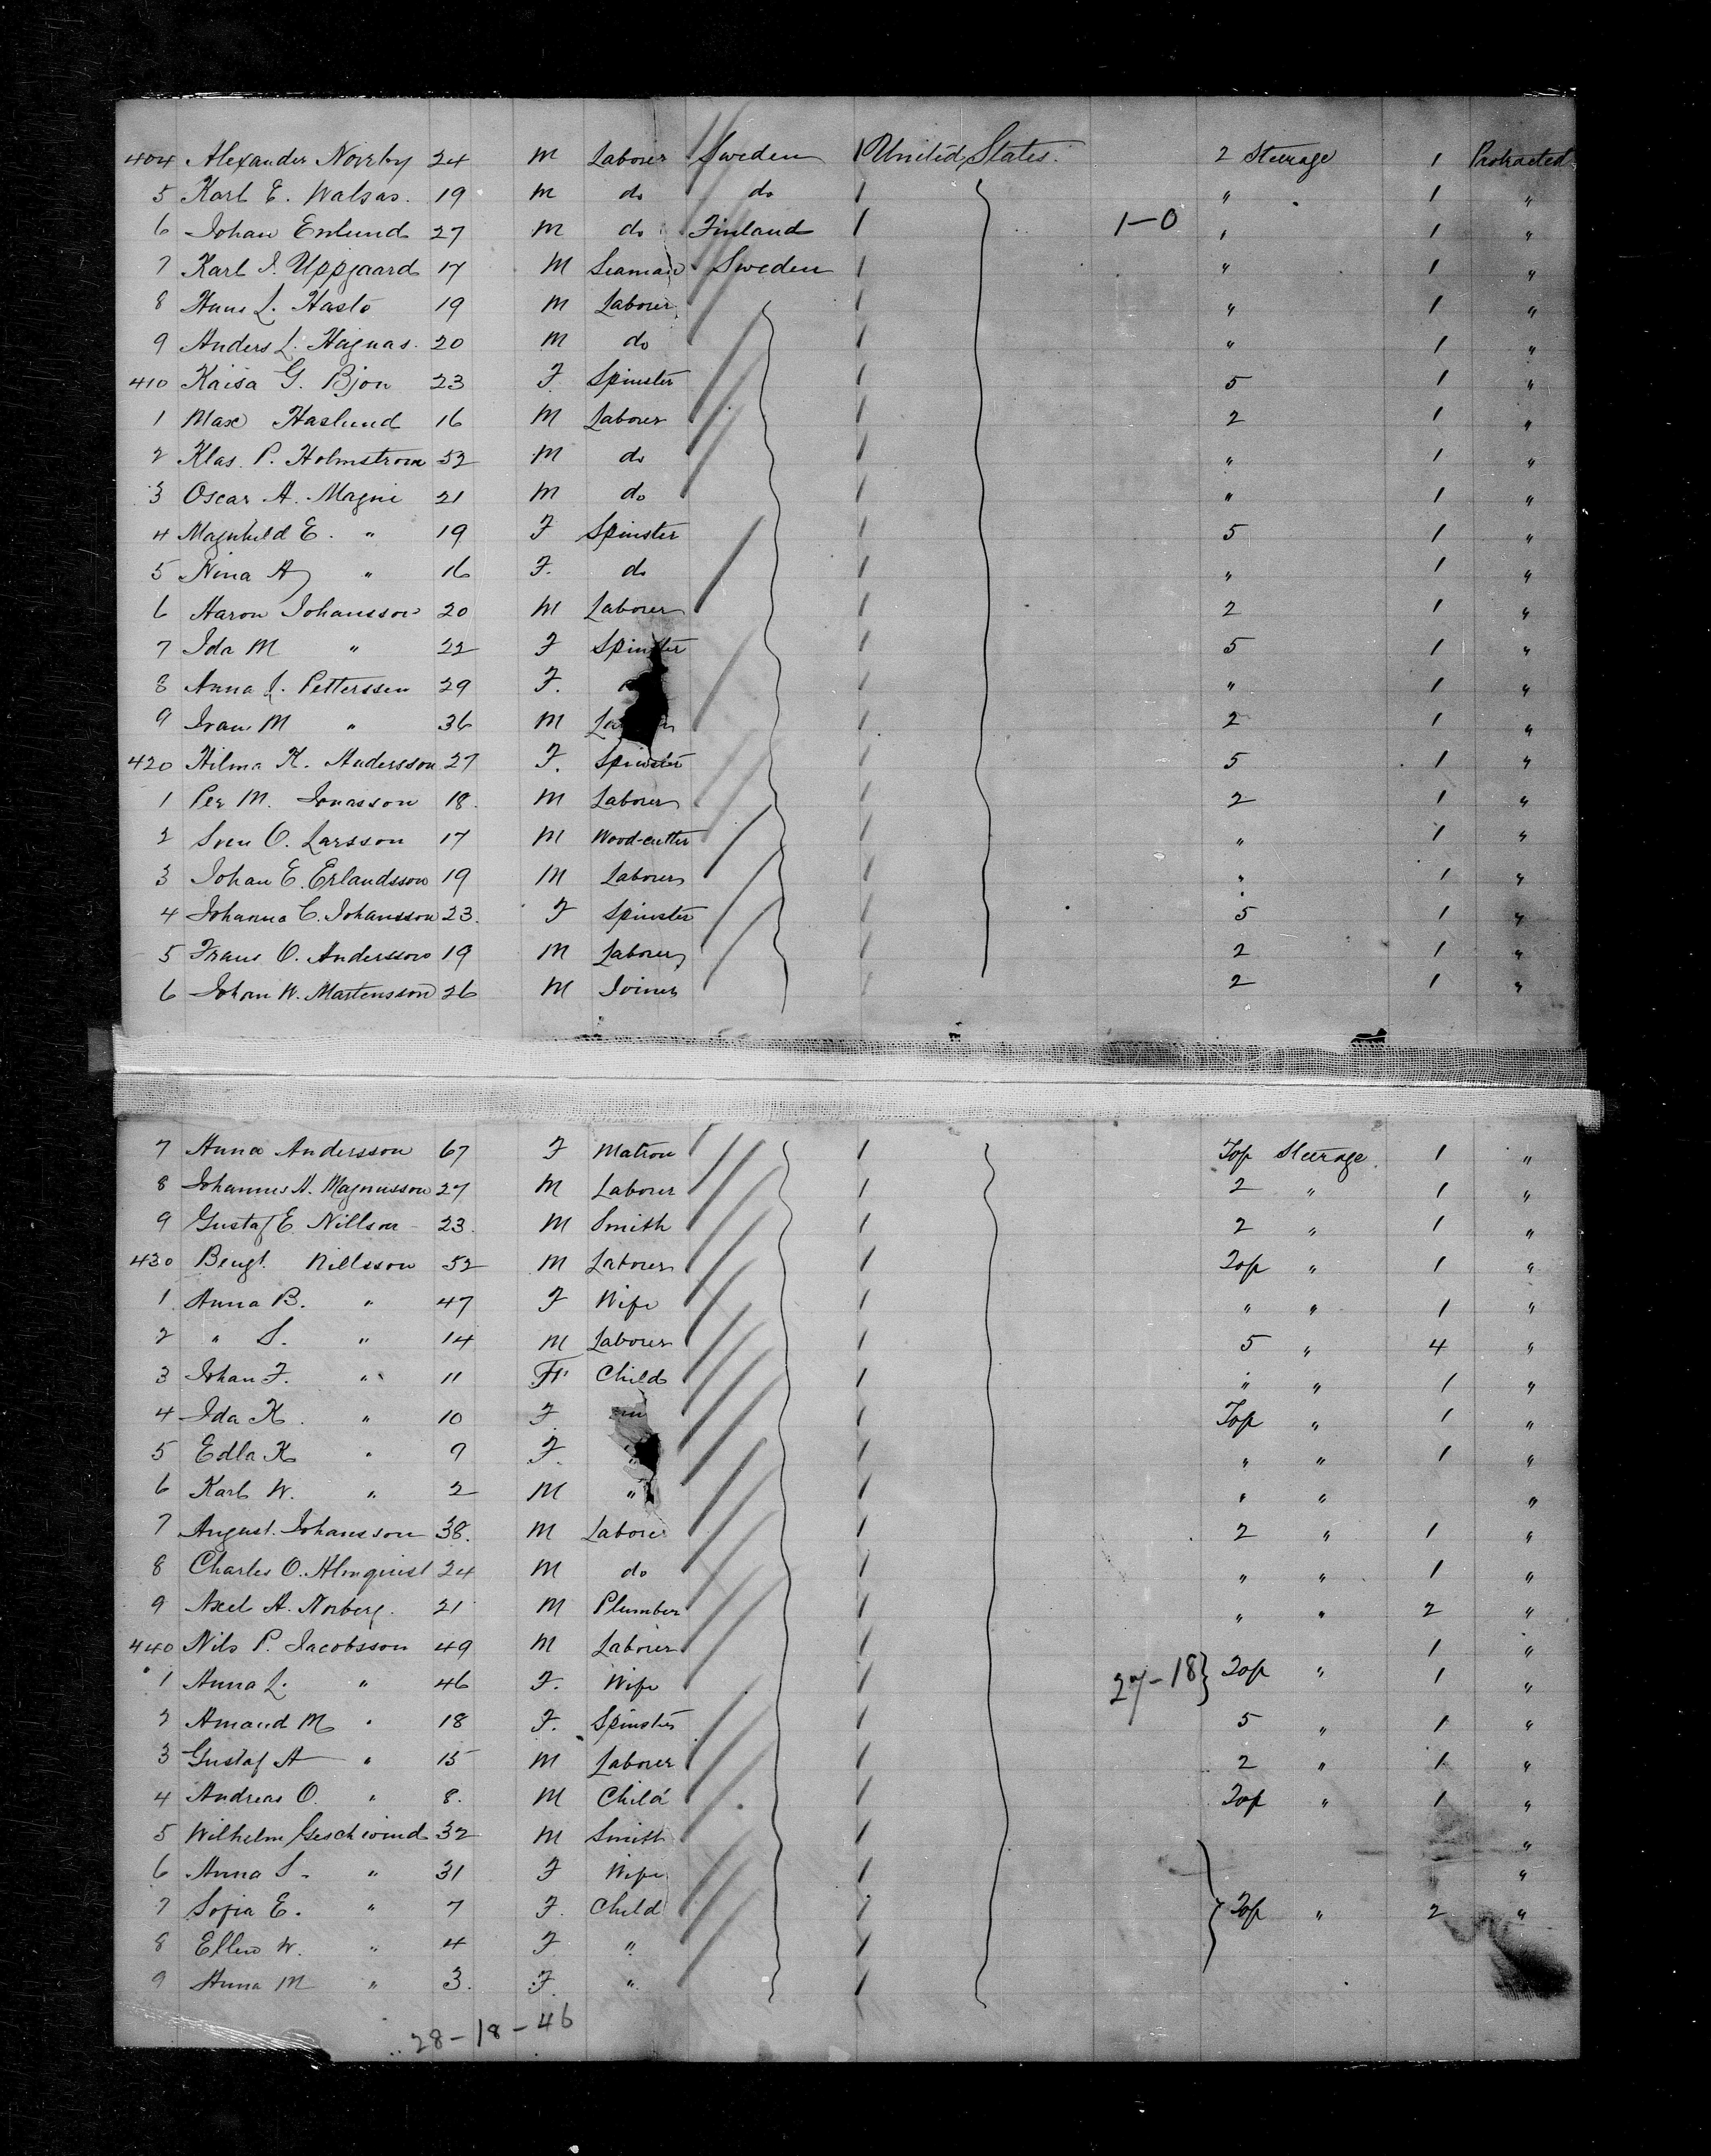 404 Alexander Norrby 24 M Laborer Sweden 1 United States. 2 Steerage 1 Protracted
5 Karl E. Walsas. 19 M do do 1 " 1 "
6 Johan Enlund 27 M do Finland 1 1-0 " 1 "
7 Karl J. Uppgaard 17 M Seaman Sweden 1 " 1 "
8 Hans L. Hasto 19 M Laborer 1 " 1 "
9 Anders L. Hagnas. 20 M do 1 " 1 "
410 Kaisa G. Bjon 23 F. Spinster 1 5 1 "
1 Max Haslund 16 M Laborer 1 2 1 "
2 Klas. P. Holmstrom 52 M do 1 " 1 "
3 Oscar A. Magni 21 M do 1 " 1 "
4 Magnhild E. " 19 F Spinster 1 5 1 "
5 Nina A " 16 F. do 1 " 1 "
6 Aaron Johansson 20 M Laborer 1 2 1 "
7 Ida M " 22 F Spinster 1 5 1 "
8 Anna J. Petterssen 29 F. 1 " 1 "
9 Ivan M " 36 M 1 2 1 "
420 Hilma K. Andersson 27 F. Spinster 1 5 1 "
1 Per M. Jonasson 18. M Laborer 1 2 1 "
2 Sven O. Larsson 17 M Wood-cutter 1 " 1 "
3 Johan E. Erlandsson 19 M Laborer 1 " 1 "
4 Johanna C. Johansson 23. F Spinster 1 5 1 "
5 Frans O. Andersson 19 M Laborer 1 2 1 "
6 Johan W. Martensson 26 M Joiner 1 2 1 "
7 Anna Andersson 67 F Matron 1 Top Steerage. 1 "
8 Johannes A. Magnusson 27 M Laborer 1 2 " 1 "
9 Gustaf E. Nillson 23. M Smith 1 2 " 1 "
430 Bengt. Nillsson 52 M Laborer 1 Top " 1 "
1 Anna B. " 47 F Wife 1 " " 1 "
2 " S. " 14 M Laborer 1 5 " 4 "
3 Johan F. " 11 Child 1 " " 1 "
4 Ida K. " 10 F 1 Top " 1 "
5 Edla K " 9 F. " 1 " " 1 "
6 Karl W. " 2 M " 1 " " "
7 August. Johansson 38. M Laborer 1 2 " 1 "
8 Charles O. Almquist 24 M do 1 " " 1 "
9 Axel A. Norberg. 21 M Plumber 1 " " 2 "
440 Nils P. Jacobsson 49 M Laborer 1 1 "
1 Anna L. " 46 F. Wife 1 27-18} Top " 1 "
2 Amand M " 18 F. Spinster 1 5 " 1 "
3 Gustaf A " 15 M Laborer 1 2 " 1 "
4 Andreas O. " 8. M Child 1 Top " 1 "
5 Wilhelm Geschwind 32 M Smith 1 "
6 Anna S. " 31 F Wife 1 "
7 Sofia E. " 7 F. Child 1 Top " 2 "
8 Ellen W. " 4 F " 1
9 Anna M " 3. F. " 1
28-18-46